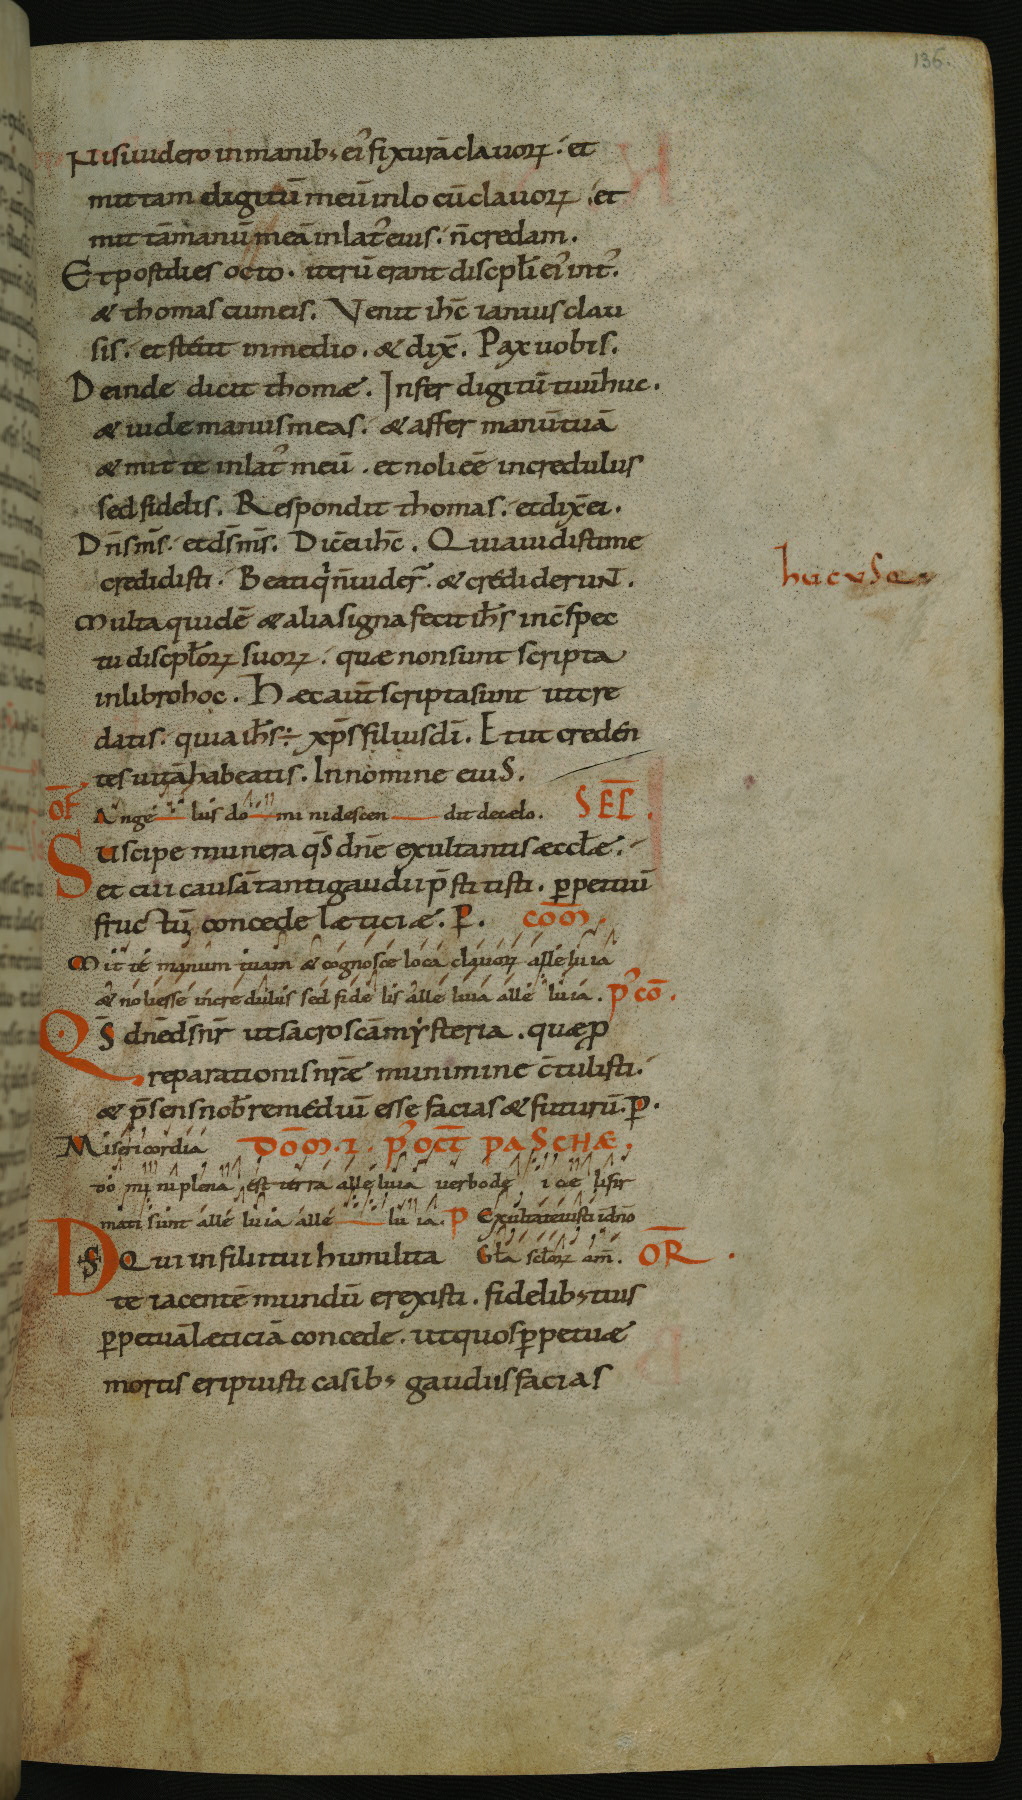 136.
Nisi uidero in manib; ei᾽ fixurā clauoꝝ. et
mittam digitū meū in locū clauoꝝ. et
mittā manū meā in lat᾽ eius. n̄ credam.
Et post dies octo. iterū erant discpłi ei᾽ int᾽.
& thomas cum eis. Venit ihc̄ ianuis clau
sis. et stetit in medio. & dix̄. Pax uobis.
Deinde dicit thomæ. Infer digitū tuū huc.
& uide manus meas. & affer manū tuā
& mitte in lat᾽ meū. et noli eē incredulus
sed fidelis. Respondit thomas. et dix̄ ei.
Dn̄s ms̄. et ds̄ ms̄. Dic̄ ei ihc̄. Quia uidisti me
credidisti. Beati q̇ n̄ uider᾽. & crediderunt.
Multa quidē & alia signa fecit ihs̄ in c̄spec
tu discpłoꝝ suoꝝ. quæ non sunt scripta
in libro hoc. Hæc aut̄ scripta sunt ut cre
datis. quia ihs̄ ÷ xp̄s filius dī. Et ut creden
tes uitā habeatis. In nomine eius.
hucusq;
OF̄ Ange lus do mini descen dit de celo. SEC̄.
Suscipe munera qs̄ dn̄e exultantis æccłæ.
et cui causā tanti gaudii p̄stitisti. ꝑpetuū
fructū concede læticiæ. P. COM̄.
Mitte manum tuam & cognosce loca clauoꝝ allelu ia
& noli esse incredulus sed fide lis alle luia alle luia. P᾽ CŌ.
Qs̄ dn̄e ds̄ nr̄ ut sacros c̄a mysteria. quæ ꝓ
reparationis nr̄æ munimine c̄tulisti.
& p̄sens nob᾽ remediū esse facias & futurū. P.
Misericordia DOM̄. I. P᾽ OCT̄ PASCHÆ.
do mi ni plena est terra alleluia uerbo de i ce li fir
mati sunt alle luia alle lu ia. P Exultate iusti i dn̄o
Gła scłoꝝ am̄. OR̄.
Ds̄ Qui in filii tui humilita
te iacentē mundū erexisti. fidelib; tuis
ꝑpetuā læticiā concede. ut quos ꝑpetuæ
mortis eripuisti casib; gaudiis facias